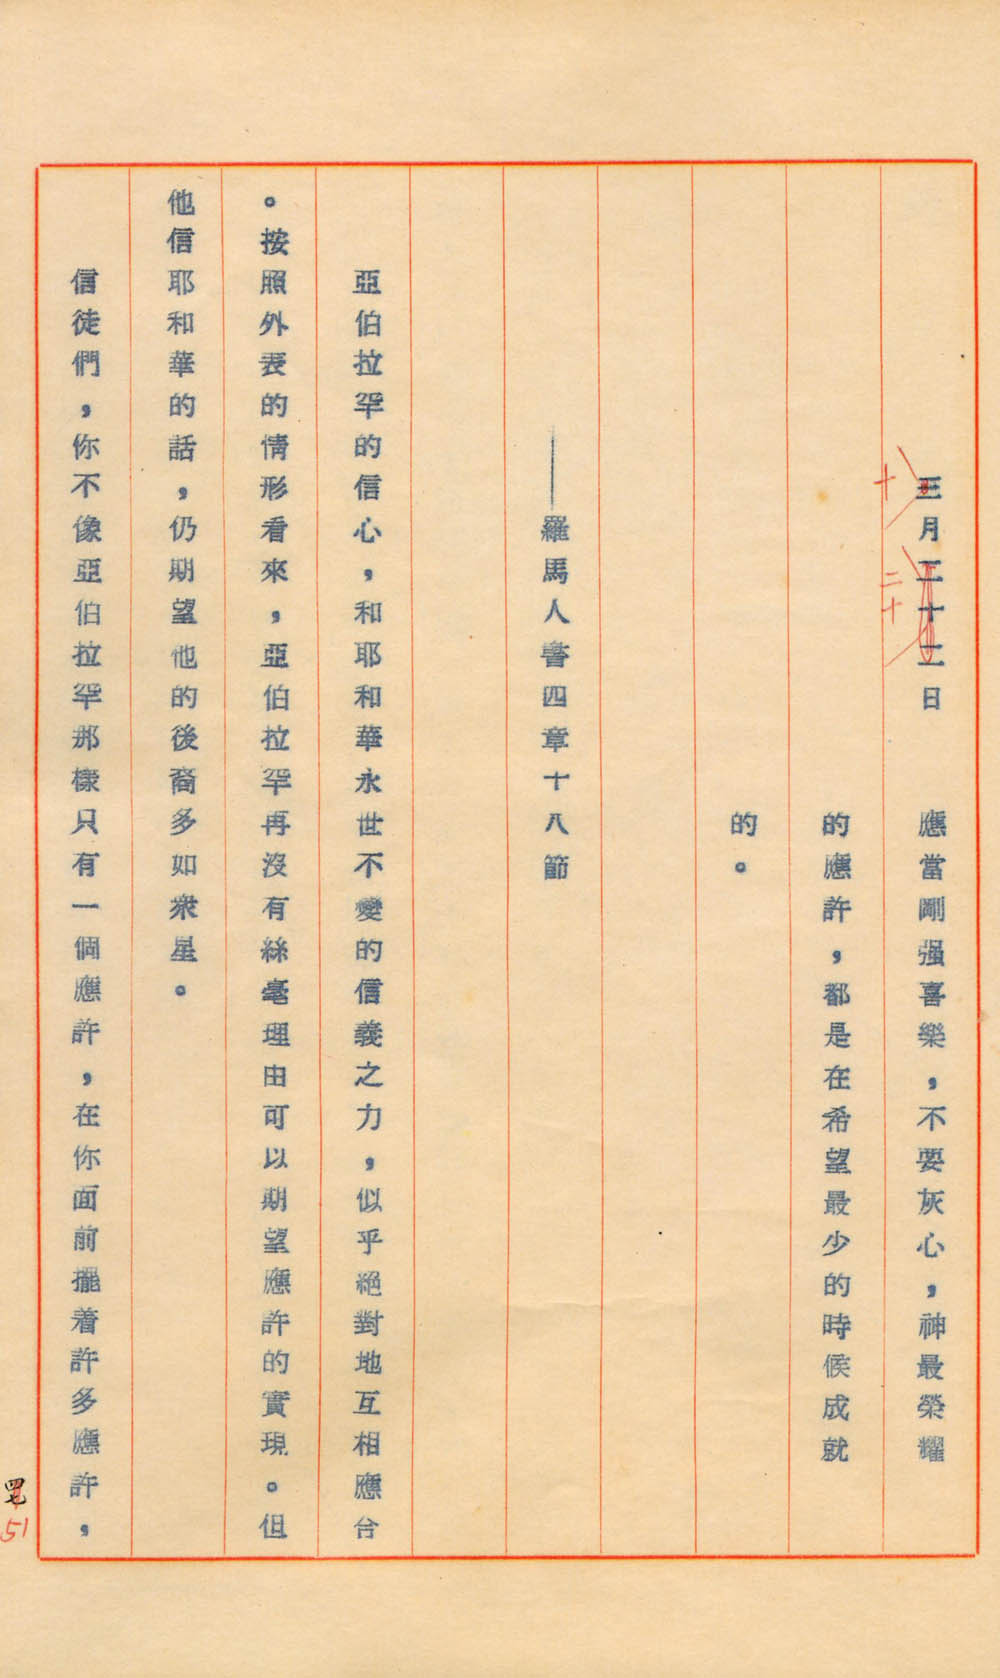 三月二十二日　應當剛强喜樂，不要灰心，神最榮耀
十
二十
的應許，都是在希望最少的時候成就
的。
——羅馬人書四章十八節
亞伯拉罕的信心，和耶和華永世不變的信義之力，似乎絕對地互相應合
。按照外表的情形看來，亞伯拉罕再沒有絲毫理由可以期望應許的實現。但
他信耶和華的話，仍期望他的後裔多如衆星。
信徒們，你不像亞伯拉罕那樣只有一個應許，在你面前擺着許多應許，
51